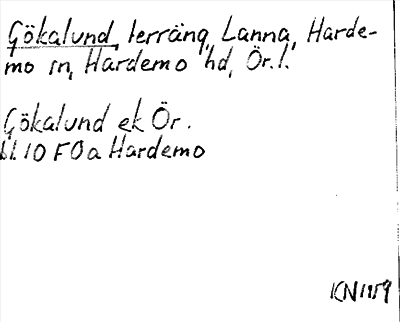 Gökalund, terräng, Lanna, Harde-
mo sn, Hardemo hd, Ör. l.
Gökalund ek Ör.
bl. 10 F 0a Hardemo
KN 1959